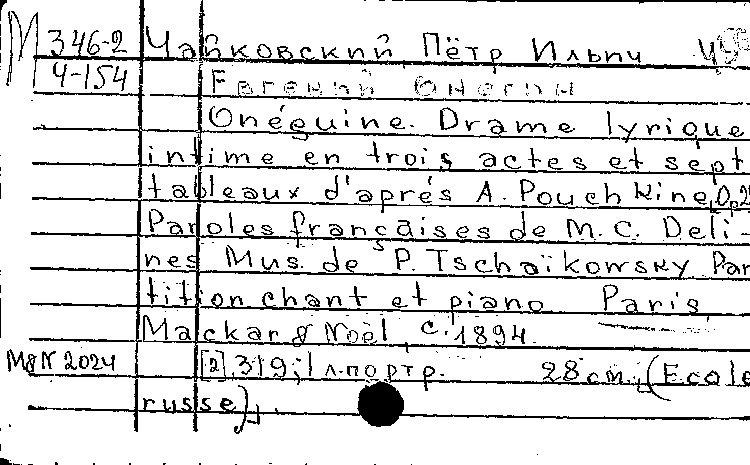 М 346-2 Чайковский, Пётр Ильич
Ч-154 Евгений Онегин
Onéguine. Drame lyrique
intime en trois actes et sept
tableaux d'aprés A. Pouchkine, Op.2
Paroles françaises de M. C. Deli-
nes Mus. de P. Tschaïkowsky Par
tition chant et piano Paris,
Mackar & Noël, c. 1894.
M&N 2024 [2], 319; 1 л. портр. 28 cm. (Ecole
russe),